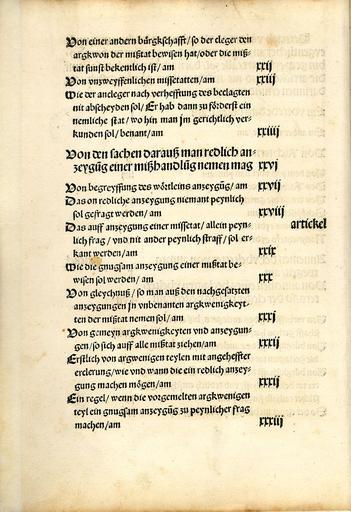 Von einer andern bürgkschafft/so der cleger den
argkwon der mißtat bewisen hat/oder die miß-
tat sunst bekentlich ist/am xxij
Von vnzweyffenlichen missetatten/am xxiij
Wie der ancleger nach verhefftung des beclagten
nit abscheyden sol/Er hab dann zu förderst ein
nemliche stat/wo hin man jm gerichtlich ver-
kunden sol/benant/am xxiiij
Von den sachen darauß man redlich an-
zeygūg einer mißhandlūg nemen mag xxvj
Von begreyffung des wörtleins anzeygūg/am xxvij
Das on redliche anzeygung niemant peynlich
sol gefragt werden/am xxviij
Das auff anzeygung einer missetat/allein peyn- artickel
lich frag/vnd nit ander peynlich straff/sol er-
kant werden/am xxix
Wie die gnugsam anzeygung einer mißtat be-
wisen sol werden/am xxx
Von gleychnuß/so man auß den nachgesatzten
anzeygungen jn vnbenanten argkwenigkeyt-
ten der mißtat nemen sol/am xxxj
Von gemeyn argkwenigkeyten vnd anzeygun-
gen/so sich auff alle mißtat ziehen/am xxxij
Erstlich von argwenigen teylen mit angeheffter
erclerung/wie vnd wann die ein redlich anzey-
gung machen mögen/am xxxij
Ein regel/wenn die vorgemelten argkwenigen
teyl ein gnugsam anzeygūg zu peynlicher frag
machen/am xxxiij